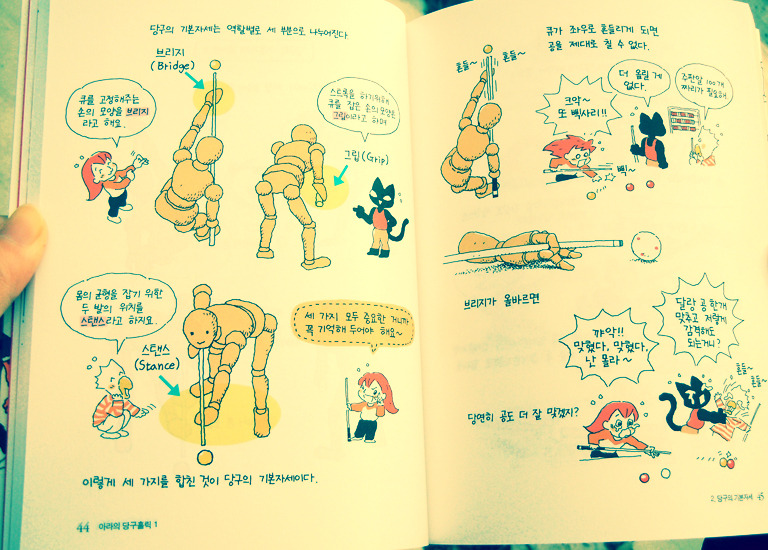 당구의 기본자세는 역할별로 세 부분으로 나누어진다.
브리지
(Bridge)
큐를 고정해주는
손의 모양을 브리지
라고 해요.
스트록을 하기위해
큐를 잡은 손의 모양은
그립이라고 하며
그립(Grip)
몸의 균형을 잡기 위한
두 발의 위치를
스탠스라고 하지요.
스탠스
(Stance)
세 가지 모두 중요한 거니까
꼭 기억해 두어야 해요~
이렇게 세 가지를 합친 것이 당구의 기본자세이다.
44 아라의 당구홀릭 1
큐가 좌우로 흔들리게 되면
공을 제대로 칠 수 없다.
흔들~
흔들~
크악~
또 삑사리!!
더 올릴 게
없다.
주판알 100개
짜리가 필요해
삑~
브리지가 올바르면
꺄악!!
맞혔다, 맞혔다.
난 몰라~
달랑 공 한개
맞추고 저렇게
감격해도
되는거니?
흔들~
흔들~
당연히 공도 더 잘 맞겠지?
2. 당구의 기본자세 45